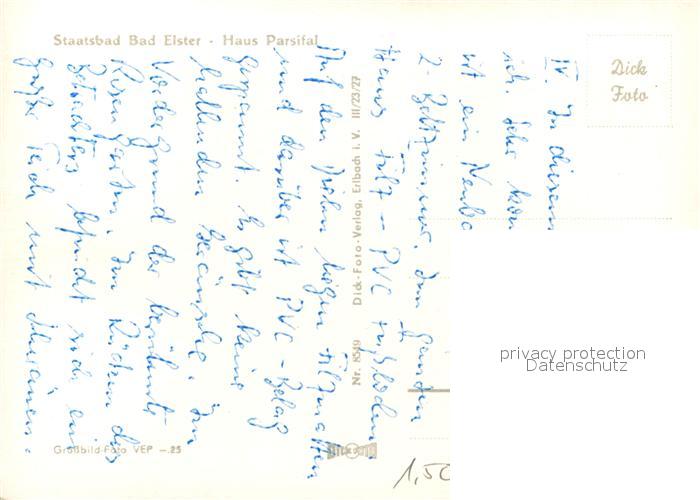 Staatsbad Bad Elster - Haus Parsifal
Dick
Foto
IV. In diesem
ich. Sehr
ist ein
2-Bettzimmer. Im ganzen
Haus Filz- + PVC Fußboden
Auf den Dielen liegen Filzmatten
und darüber ist PVC-Belag
gespannt. Es gibt keine
hallenden Geräusche. Im
Vordergrund der berühmte
Rosengarten. Im Rücken des
Betrachters befindet sich ein
große Teich mit
Nr. 8549 Dick-Foto-Verlag, Erlbach i. V. III/23/27
Großbild-Foto VEP -.25
1,50
privacy protection
Datenschutz